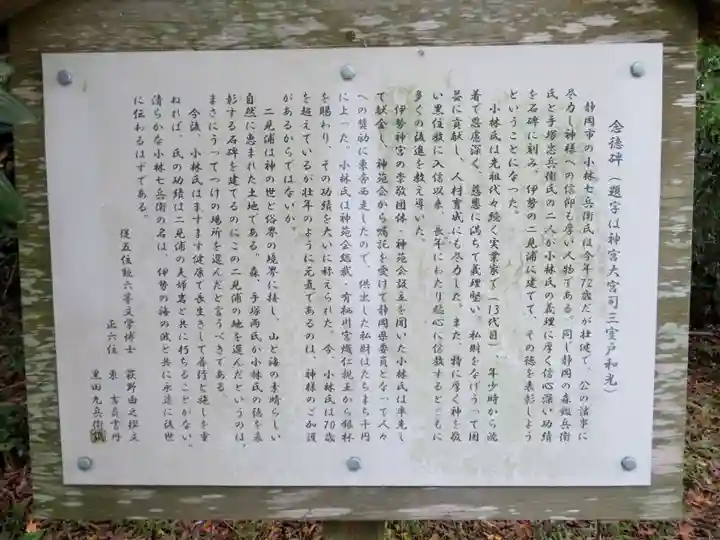 念徳碑（題字は神宮大宮司三室戸和光）
静岡市の小林七兵衛氏は今年72歳だが壮健で、公の諸事に
尽力し神様への信仰も厚い人物である。同じ静岡の森鑑兵衛
氏と手塚忠兵衛氏の二人が小林氏の義理に厚く信心深い功績
を石碑に刻み、伊勢の二見浦に建てて、その徳を表彰しよう
ということになった。
小林氏は先祖代々続く実業家で（13代目）、年少時から沈
着で思慮深く、慈悪に満ちて義理堅い。私財をなげうって国
益に貢献し、人材育成にも尽力した。また、特に厚く神を敬
い黒住教に入信以来、長年にわたり熱心に信教するとともに
多くの後進を教え導いた。
伊勢神宮の崇敬団体・神苑会設立を聞いた小林氏は率先し
て献金し、神苑会から嘱託を受けて静岡県委員となって人々
への賛助に東奔西走したので、供出した私財はたちまち千円
に上った。小林氏は神苑会総裁・有栖川宮熾仁親王から銀杯
を賜わり、その功績を大いに称えられた。今、小林氏は70歳
を超えているが壮年のように元気であるのは、神様のご加護
があるからではないか。
二見浦は神の世と俗界の境界に接し、山と海の素晴らしい
自然に恵まれた土地である。森、手塚両氏が小林氏の徳を表
彰する石碑を建てるのにこの二見浦の地を選んだというのは、
まさにうってつけの場所を選んだと言うべきである。
今後、小林氏はますます健康で長生きして善行と施しを重
ねれば、氏の功績は二見浦の夫婦岩と共に朽ちることがない。
清らかな小林七兵衛の名は、伊勢の海の波と共に永遠に後世
に伝わるはずである。
従五位勲六等文学博士　萩野由之撰文
正六位　東　吉貞書丹
里田九兵衛鐫